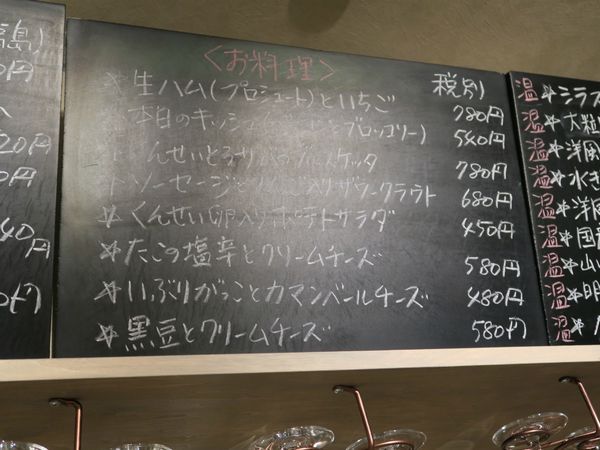 島)
0円
20円
0円
40円
0円
<お料理>
税別
*生ハム(プロシュート)といちご 780円
本日のキッシュ ブロッコリー) 540円
くんせいとろサバのブルスケッタ 780円
ソーセージと 入りザワークラウト 680円
*くんせい卵入りポテトサラダ 450円
*たこの塩辛とクリームチーズ 580円
*いぶりがっことカマンベールチーズ 480円
*黒豆とクリームチーズ 580円
温*シラス
温*大粒
温*洋風
温*水き
温*洋風
温*国産
温*山い
温*明
温*